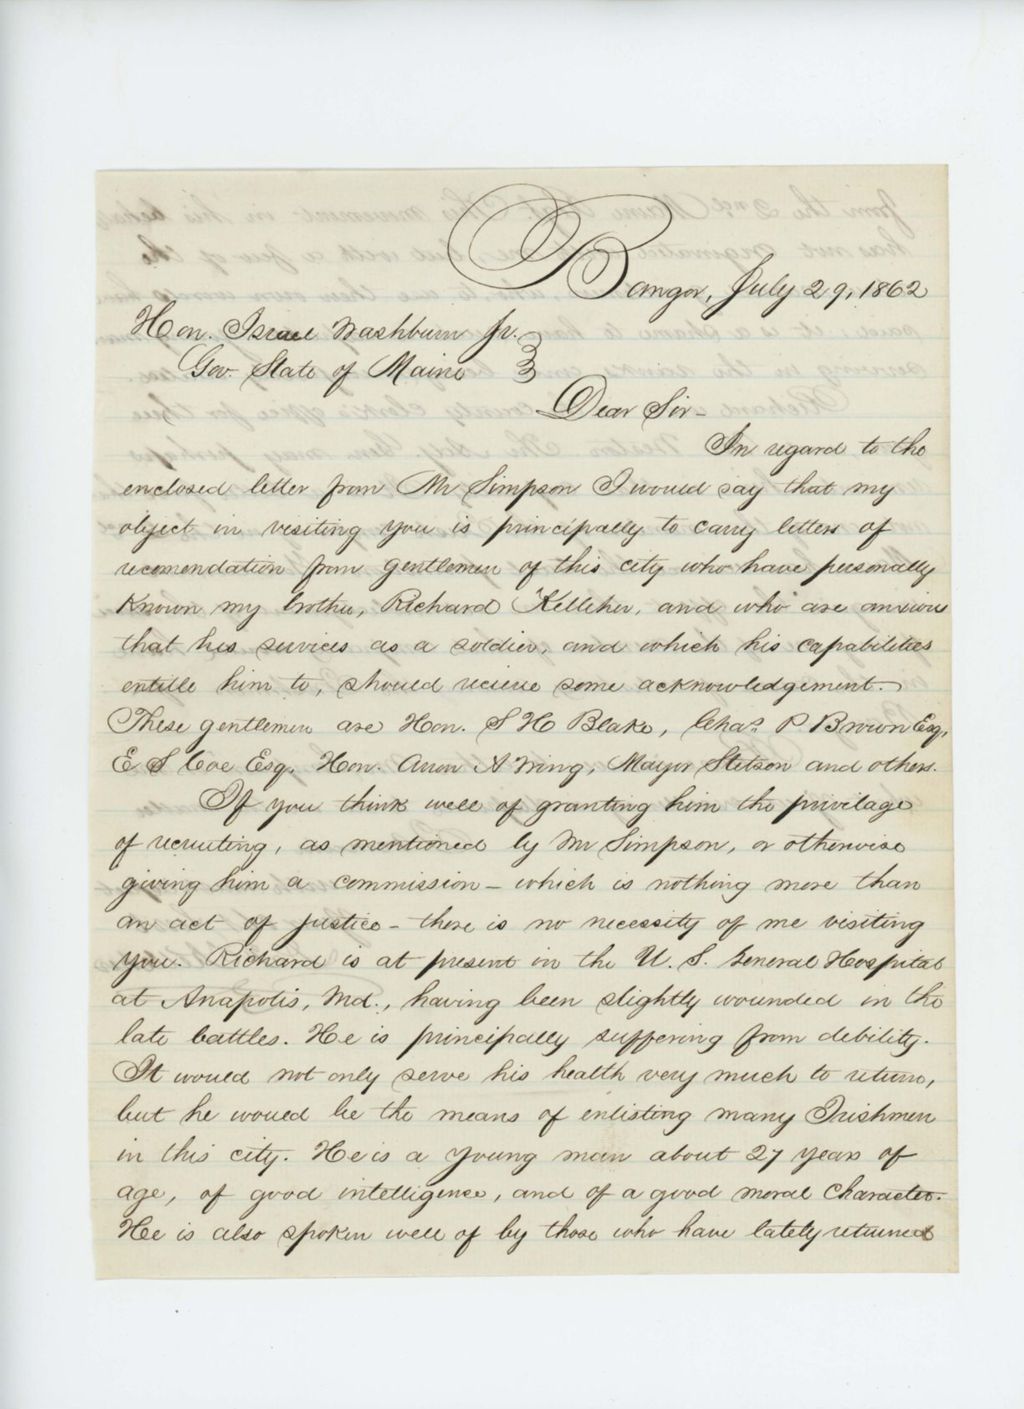 Bangor, July 29, 1862
Hon. Israel Washburn Jr.
Gov. State of Maine
Dear Sir -
In regard to the
enclosed letter from Mr Simpson I would say that my
object in visiting you is principally to carry letters of
recomendation from gentlemen of this city who have personally
known my brother, Richard Kelleher, and who are anxious
that his services as a soldier, and which his capabilities
entitle him to, should recieve some acknowledgement.
These gentlemen are Hon. S H Blake, Chas. P Brown Esq,
E S Coe Esq. Hon. Aaron A Wing, Mayor Stetson and others.
If you think well of granting him the privilage
of recruiting, as mentioned by Mr Simpson, or otherwise
giving him a commission - which is nothing more than
an act of justice - there is no necessity of me visiting
you. Richard is at present in the U. S. General Hospital
at Anapolis, Md., having been slightly wounded in the
late battles. He is principally suffering from debility.
It would not only serve his health very much to return,
but he would be the means of enlisting many Irishmen
in this city. He is a young man about 27 years of
age, of good intelligence, and of a good moral character.
He is also spoken well of by those who have lately returned